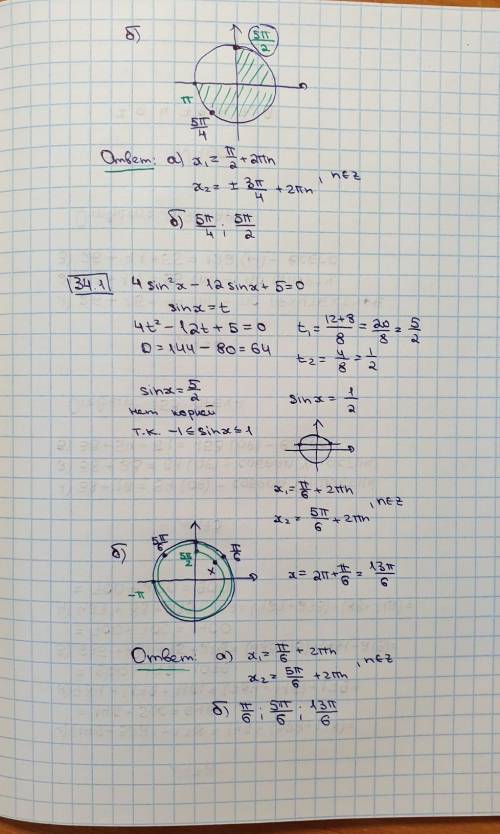 б)
5π/2
π
5π/4
Ответ: а) x₁ = π/2 + 2πn
x₂ = ± 3π/4 + 2πn, n∈z
б) 5π/4; 5π/2
34.1 4 sin²x − 12 sinx + 5 = 0
sinx = t
4t² − 12t + 5 = 0
D = 144 − 80 = 64
t₁ = (12+8)/8 = 20/8 = 5/2
t₂ = 4/8 = 1/2
sinx = 5/2
нет корней
т.к. −1 ≤ sinx ≤ 1
sinx = 1/2
x₁ = π/6 + 2πn
x₂ = 5π/6 + 2πn, n∈z
б)
5π/6
5π/2
π/6
x
−π
x = 2π + π/6 = 13π/6
Ответ: а) x₁ = π/6 + 2πn
x₂ = 5π/6 + 2πn, n∈z
б) π/6; 5π/6; 13π/6